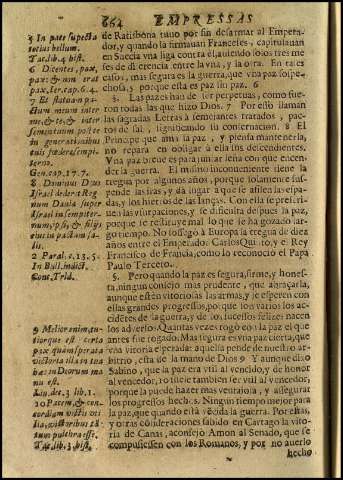 664 EMPRESSAS
5 In pace suspecta
tutius bellum.
Tac. lib. 4. hist.
6 Dicentes, pax,
pax: & non erat
pax, Ier. cap. 6. 4.
7 Et statuã pa-
ctum meum inter
me, & te, & inter
semen tuum post te
in generationibus
suis fœdere sempi-
terno.
Gen. cap. 17. 7.
8 Dominus Deus
Israel dederit Reg-
num Dauid super
Israel in sempiter-
num, ipsi, & filijs
eius in pactum sa-
lis.
2. Paral. c. 13. 5.
In Bull. indict.
Conc. Trid.
9 Melior enim, tu-
tiorque est certa
pax quàm sperata
victoria illa in tua
hæc in Deorum ma
nu est.
Liu. dec. 3. lib. 1.
10 Pacem, & con-
cordiam victis vti-
lia, victoribus tã-
tum pulchra esse.
Tac. lib. 3. hist.
de Ratisbona tuuo por fin desarmar al Empera-
dor, y quando la firmauan Franceses, capitulauan
en Suecia vna liga contra el, auiendo solos tres me
ses de diferencia entre la vna, y la otra. En tales
casos, mas segura es la guerra, que vna paz sospe-
chosa, 5 y porque esta es paz sin paz. 6
§. Las pazes han de ser perpetuas, como fue-
ron todas las que hizo Dios. 7 Por esso llaman
las sagradas Letras à semejantes tratados, pac-
tos de sal, significando su conseruacion. 8 El
Principe que ama la paz, y piensa mantenerla,
no repara en obligar à ella sus descendientes.
Vna paz breue es para juntar leña con que encen-
der la guerra. El mismo inconueniente tiene la
tregua por algunos años, porque solamente sus-
pende las iras, y dà lugar à que se afilen las espa-
das, y los hierros de las lanças. Con ella se prescri-
uen las vsurpaciones, y se dificulta despues la paz,
porque se restituye mal lo que se ha gozado lar-
go tiempo. No sossegò à Europa la tregua de diez
años entre el Emperador Carlos Quinto, y el Rey
Francisco de Francia, como lo reconociò el Papa
Paulo Tercero.
§. Pero quando la paz es segura, firme, y hones-
ta, ningun consejo mas prudente, que abraçarla,
aunque estèn vitoriosas las armas, y se esperen con
ellas grandes progressos, porque son varios los ac-
cidẽtes de la guerra, y de los sucessos felizes nacen
los aduersos. Quantas vezes rogò con la paz el que
antes fue rogado. Mas segura es vna paz cierta, que
vna vitoria esperada: aquella pende de nuestro ar-
bitrio, esta de la mano de Dios 9 Y aunque dixo
Sabino, que la paz era vtil al vencido, y de honor
al vencedor, 10 suele tambien ser vtil al vencedor,
porque la puede hazer mas ventajosa, y assegurar
los progressos hechos. Ningun tiempo mejor para
la paz, que quando està vẽcida la guerra. Por estas,
y otras consideraciones sabido en Cartago la vito-
ria de Canas, aconsejò Amon al Senado, que se
compusiessen con los Romanos, y por no auerlo
hecho